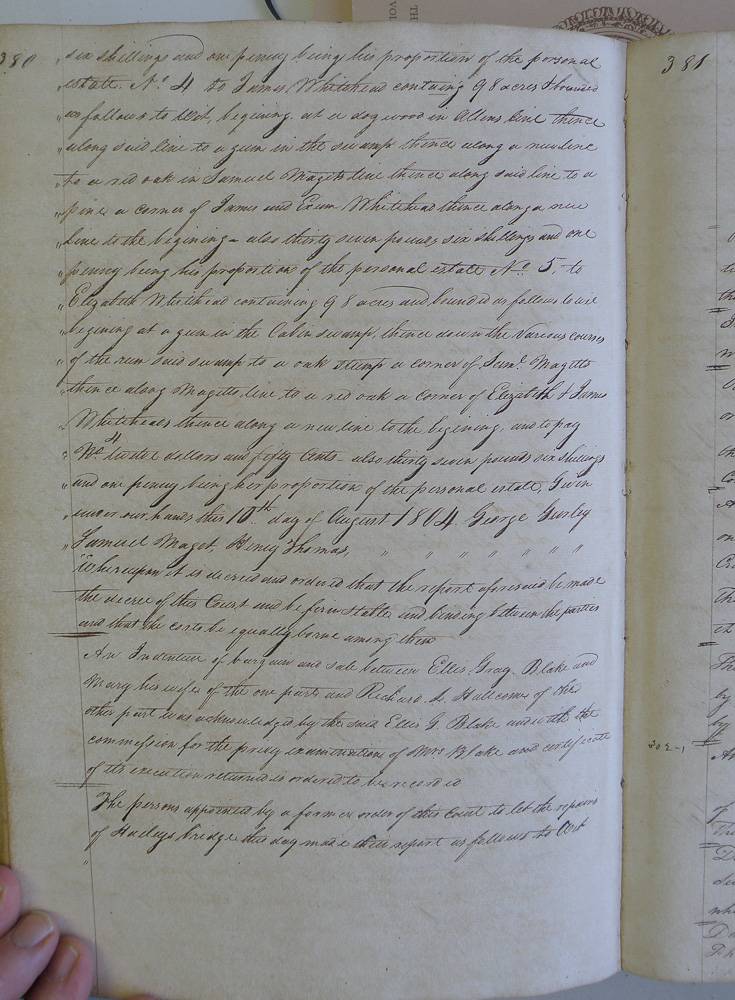 380
" six shillings and one penny being his proportion of the personal
" estate. No. 4 to James Whitehead containg 98 acres & bounded
" as follows to Wit, begining at a dogwood in Allens line thence
" along said line to a gum in the swamp thence along a new line
" to a red oak in Samuel Magets line thence along said line to a
" pine a corner of James and Exum Whitehead thence along a new
" Line to the begining - also thirty seven pounds six shillings and one
" penny being his proportion of the personal estate No. 5. to
" Elizabeth Whitehead containing 98 acres and bounded as follows to wit
" begining at a gum in the Cabin swamp, thence down the Various courses
" of the run said swamp to a oak stump a corner of Saml. Magetts
" thence along Magetts line to a red oak a corner of Elizabeth & James
" Whiteheads thence along a new line to the begining, and to pay
" No. 4 twelve dollars and fifty Cents - also thirty seven pounds six shillings
" and one penny being her proportion of the personal estate, Given
" under our hands this 10th day of August 1804. George Gurley
" Samuel Maget, Henry Thomas, " " " " " " "
Whereupon it is decreed and ordered that the report aforesaid be made
the decree of this Court and be firm stable and binding between the parties
and that the costs be equally borne among them
An Indenture of bargain and sale between Ellis Gray Blake and
Mary his wife of the one part and Richard A. Hallcome of the
other part was acknowledged by the said Ellis G. Blake and with the
commission for the privy examination of Mrs Blake and certificate
of its execution returned is ordered to be recorded
The persons appointed by a former order of this Court to let the repairs
of Haileys bridge this day made their report as follows to Wit
"
381
302-1